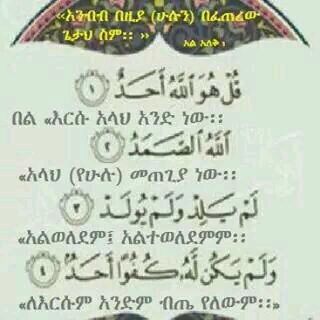 ‹‹አንብብ በዚያ (ሁሉን) በፈጠረው
ጌታህ ስም፡፡ ›› አል አለቅ 1
قُلْ هُوَ اللَّهُ أَحَدٌ ١
በል «እርሱ አላህ አንድ ነው፡፡
اللَّهُ الصَّمَدُ ٢
«አላህ (የሁሉ) መጠጊያ ነው፡፡
لَمْ يَلِدْ وَلَمْ يُولَدْ ٣
«አልወለደም፤ አልተወለደምም፡፡
وَلَمْ يَكُن لَّهُ كُفُوًا أَحَدٌ ٤
«ለእርሱም አንድም ብጤ የለውም፡፡»